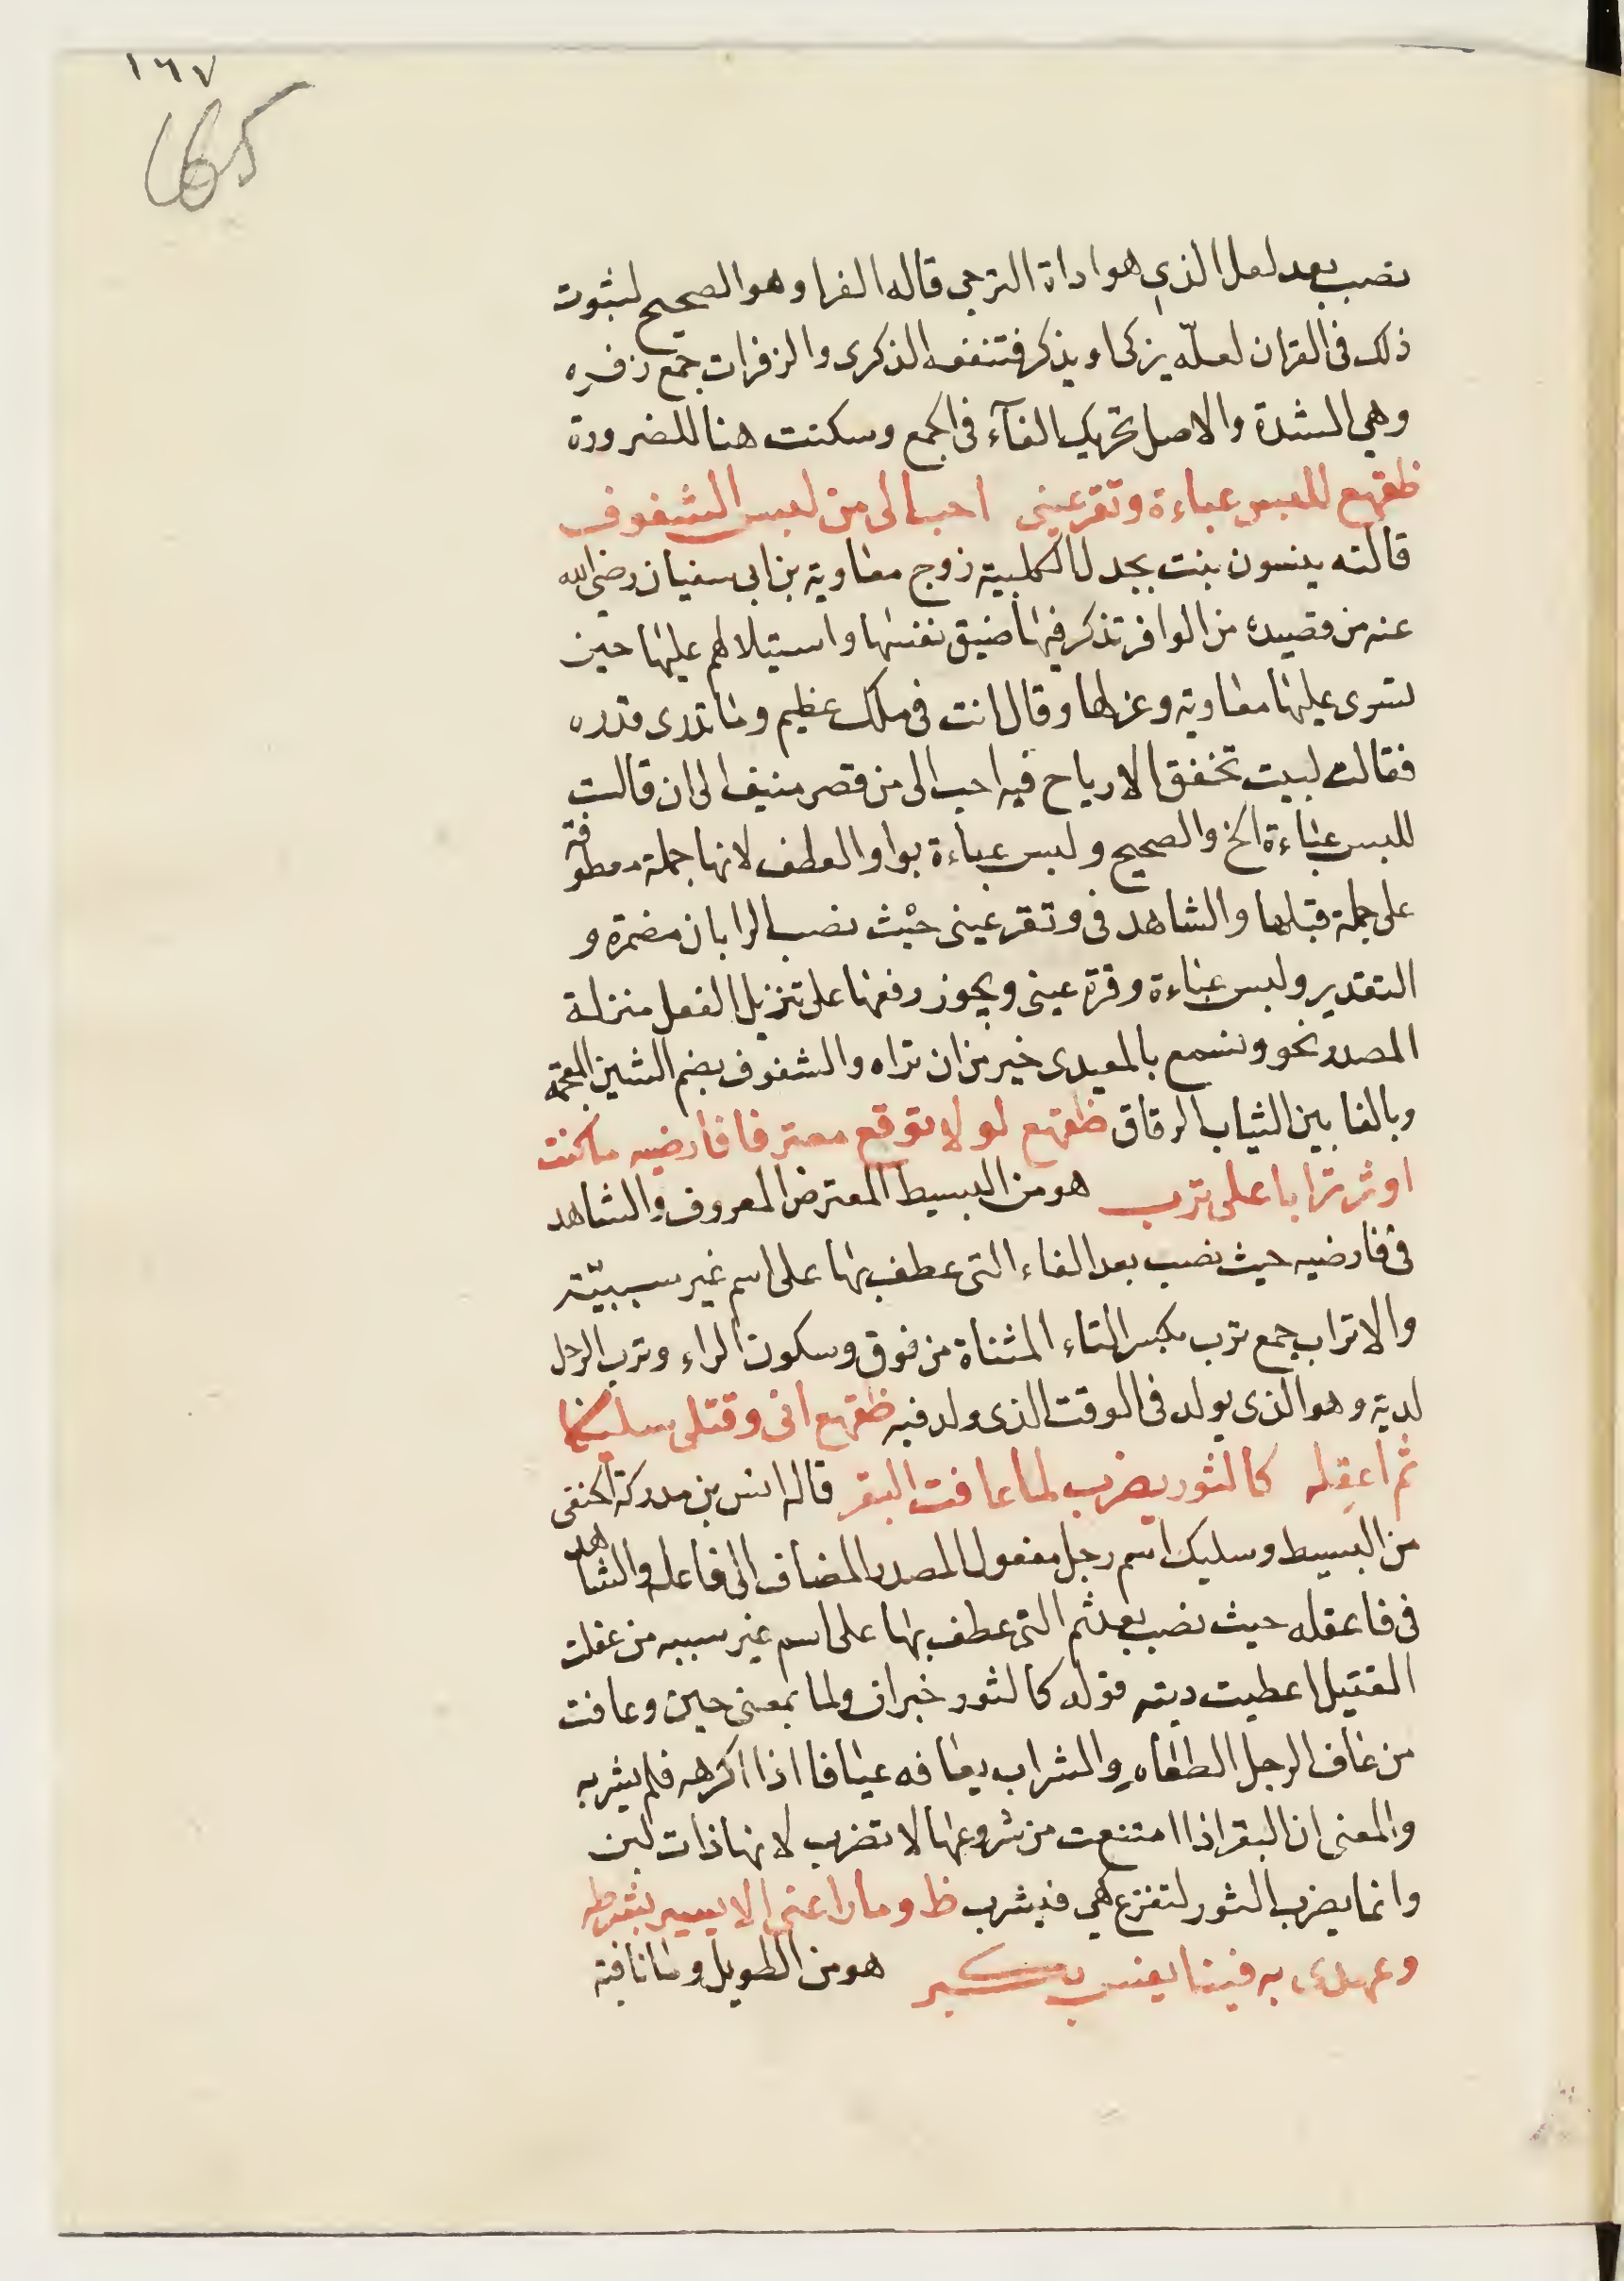 ١٦٧
نصب بعد لعل الذي هو اداة الترجي قاله الفرا وهو الصحيح لثبوت
ذلك في القران لعلّه يزكى او يذكر فتنفعه الذكرى والزفرات جمع زفره
وهي الشدة والاصل تحريك الفآء في الجمع وسكنت هنا للضرورة
ظقهع للبس عباءة وتقر عيني احب الى من لبس الشفوف
قالته ميسون بنت بجدل الكلبية زوج معاوية بن ابي سفيان رضي الله
عنه من قصيدة من الوافر تذكر فيها ضيق نفسها واستيلا هم عليها حين
تسرى عليها معاوية وعزلها وقال انت في ملك عظيم وما تدرى قدره
فقالت لبيت تخفق الارياح فيه احب الى من قصر منيف الى ان قالت
للبس عباءة الخ والصحيح ولبس عباءة بواو العطف لانها جملة معطوفة
على جملة قبلها والشاهد في وتقر عيني حيث نصب الرا بان مضمرة و
التقدير ولبس عباءة وقرة عيني ويجوز رفعها على تنزيل الفعل منزلة
المصدر نحو وتسمع بالمعيدى خير من ان تراه والشفوف بضم الشين المعجمة
وبالفا بين الثياب الرقاق ظقهع لو لا توقع معتر فا فارضيه ما كنت
اوثر ترابا على ترب هو من البسيط المعترض المعروف والشاهد
في فارضيه حيث نصب بعد الفاء التي عطف بها على اسم غير سببيّة
والاتراب جمع ترب بكسر التاء المثناة من فوق وسكون الراء وترب الرجل
لدية وهو الذى يولد في الوقت الذى ولد فيه ظقهع انى وقتلى سليكا
ثم اعقله كالثور يضرب لما عافت البقر قاله انس بن مدركة الخثعمي
من البسيط وسليك اسم رجل مفعول المصدر المضاف الى فاعله والشاهد
في فاعقله حيث نصب بعد ثم التي عطف بها على اسم غير سببيه من عقلت
القتيل اعطيت ديته قوله كالثور خبر ان ولما بمعنى حين وعافت
من عاف الرجل الطعام والشراب يعافه عيافا اذا اكرهه فلم يشربه
والمعنى ان البقر اذا امتنعت من شروعها لا تضرب لانها ذات لبن
وانما يضرب الثور لتفزع هي فيشرب ظ وما راعني الا يسير بشرطه
وعهدى به فينا يفس بكير هو من الطويل وما نافية